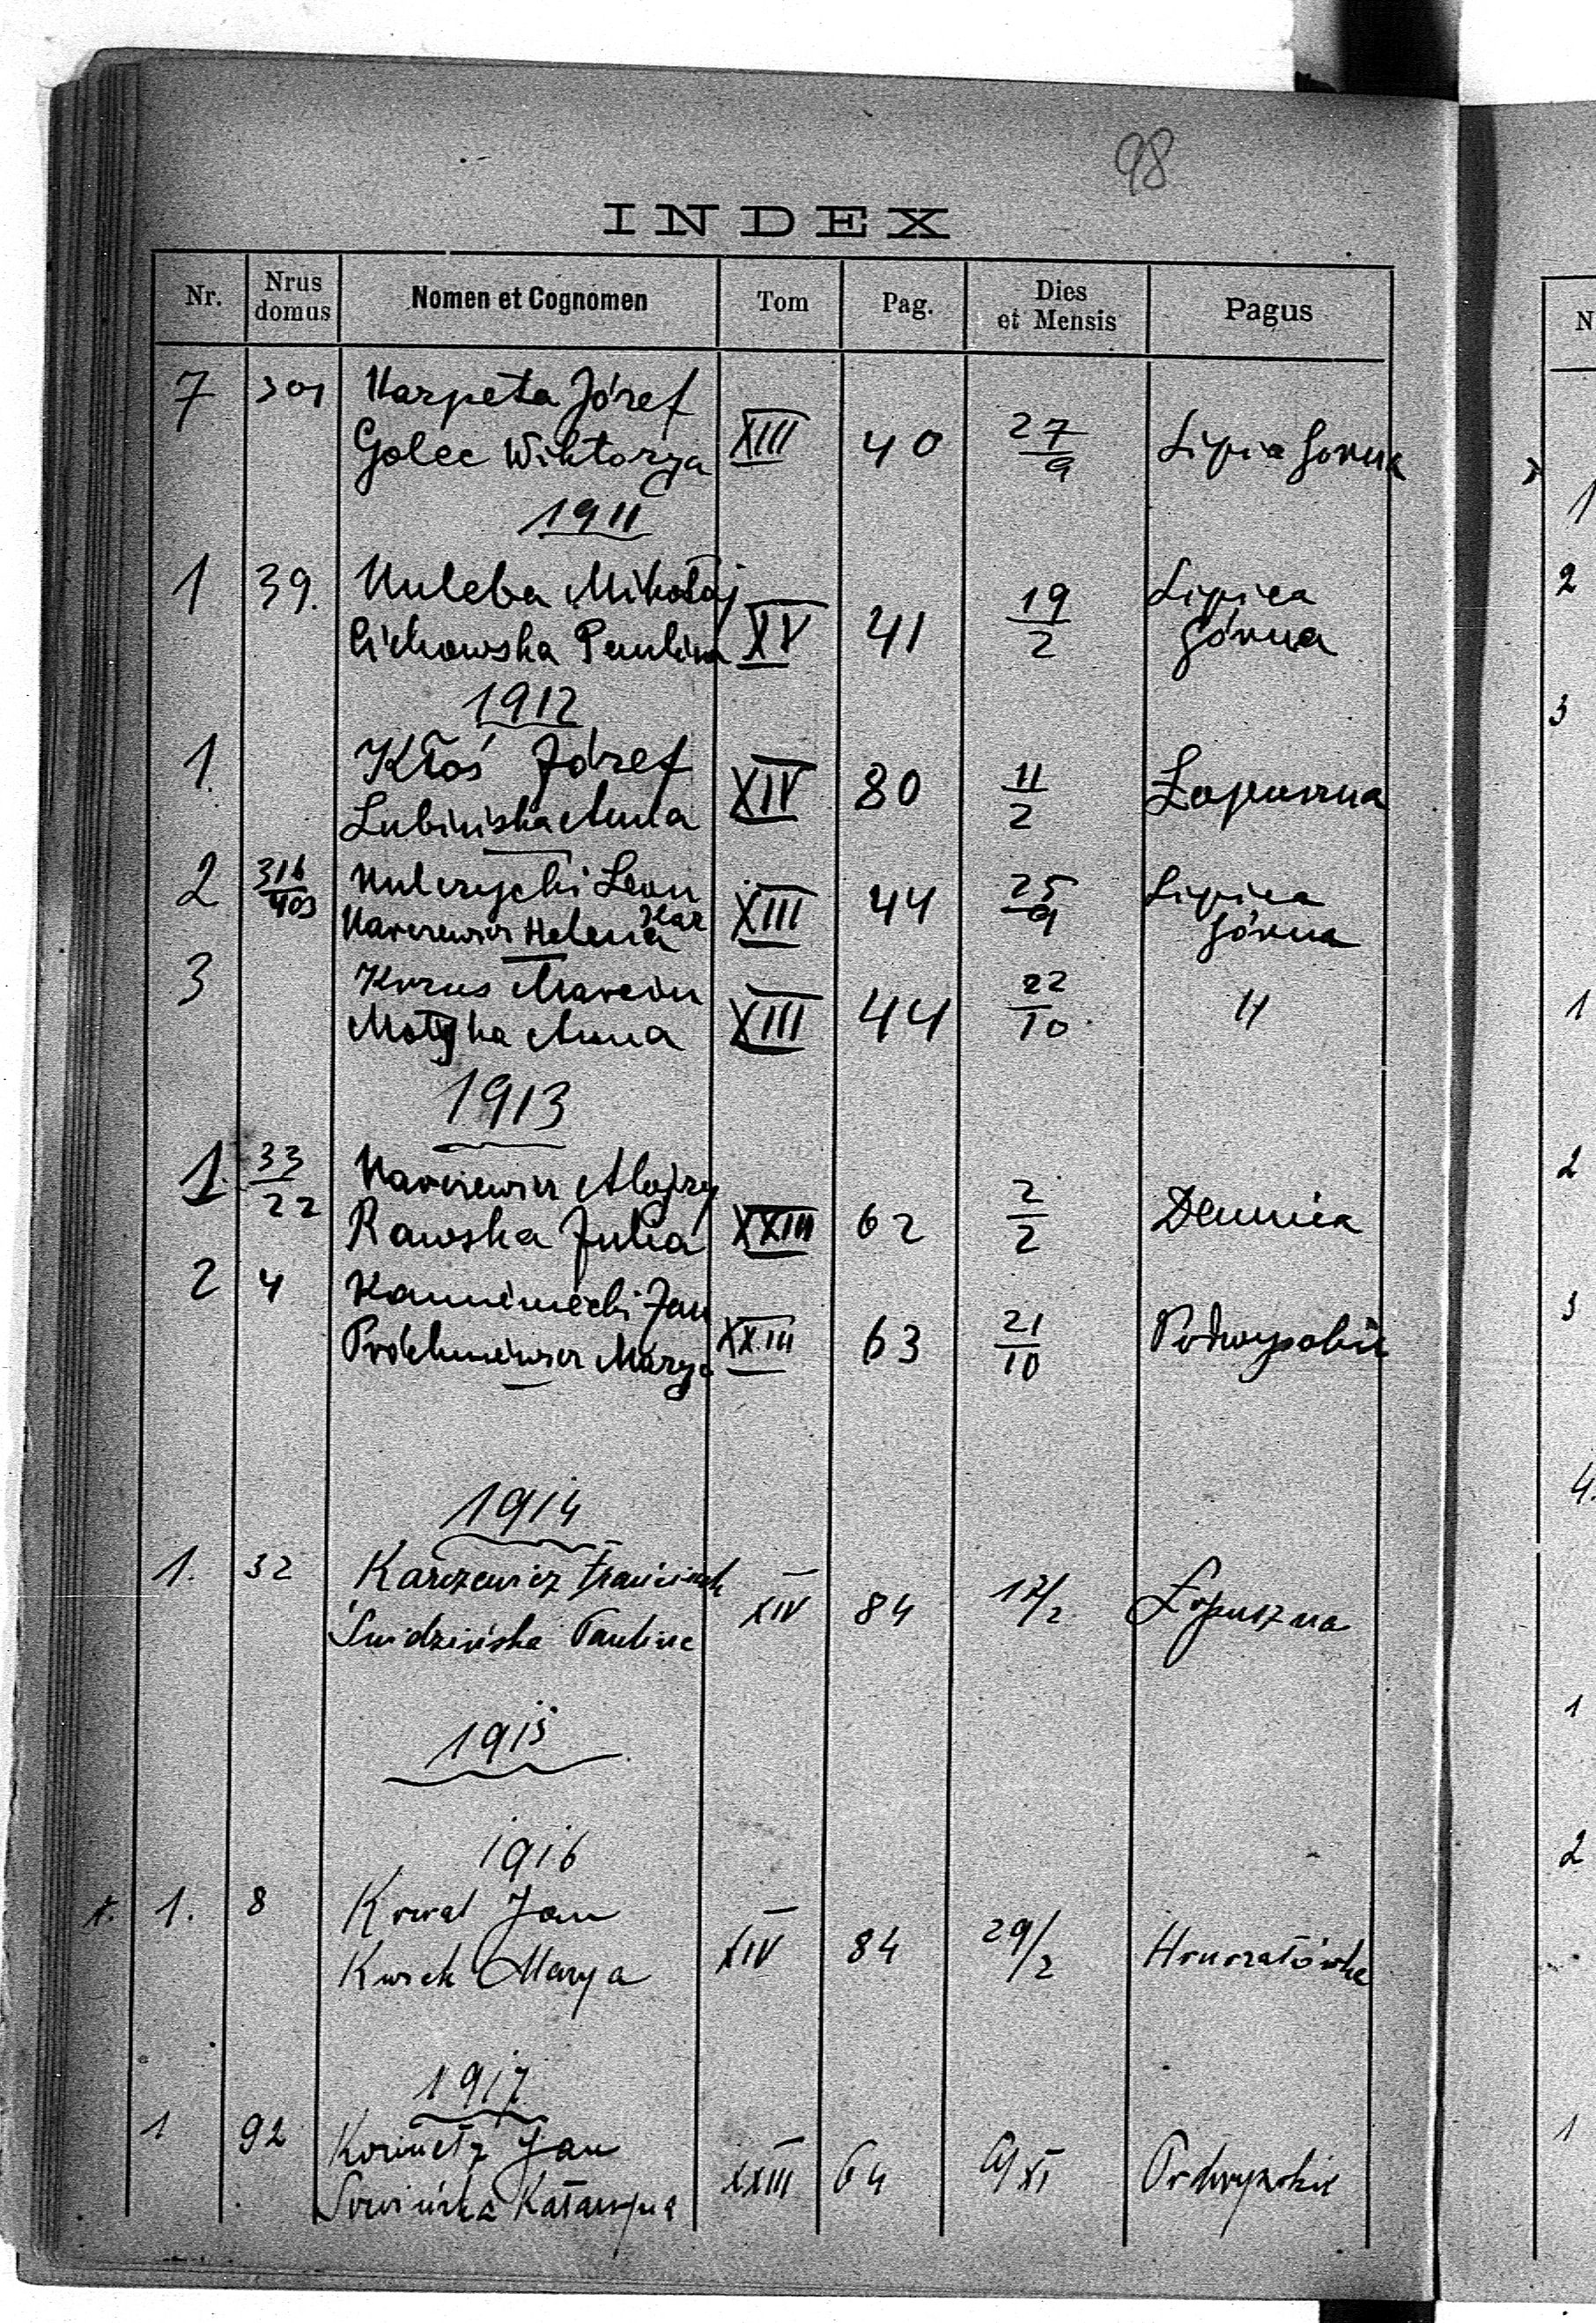 98
INDEX
Nr. Nrus domus Nomen et Cognomen Tom Pag. Dies et Mensis Pagus
7 301 Karpeta Józef
Golec Wiktorya XIII 40 27/9 Lipica Górna
1911
1 39. Kuleba Mikołaj
Cichowska Paulina XV 41 19/2 Lipica Górna
1912
1. Kłoś Józef
Lubińska Anna XIV 80 11/2 Łopuszna
2 316/403 Kulczycki Leon
Karczewicz Helena XIII 44 25/9 Lipica Górna
3 Marcin
Motyka Anna XIII 44 22/10 "
1913
1. 33/22 Karczewicz Alojzy
Rawska Julia XXIII 62 2/2 Demnia
2 4 Kamieniecki Jan
Marya XXIII 63 21/10 Podwysokie
1914
1. 32 Karczewicz Franciszek
Śmidzińska Paulina XIV 84 17/2 Łopuszna
1915
1916
1. 8 Jan
Kusek Marya XIV 84 29/2 Honoratówka
1917
1 92 Jan
Katarzyna XXIII 64 Podwysokie
N
1
2
3
1
2
3
4.
1
2
1